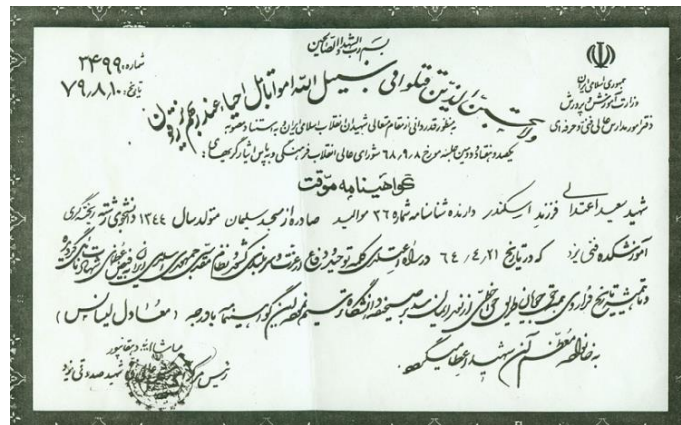 بسم رب الشهداء و الصالحین
شماره: ۳۴۹۹
تاریخ: ۷۹٫۸٫۱۰
جمهوری اسلامی ایران
وزارت آموزش و پرورش
دفتر امور مدارس عالی فنی و حرفه ای
ولا تحسبن الذین قتلوا فی سبیل الله امواتا بل احیاء عند ربهم یرزقون
به منظور قدردانی از مقام متعالی شهیدان انقلاب اسلامی ایران و به استناد مصوبه
یکصد و هفتاد و دومین جلسه مورخ ۶۸٫۹٫۸ شورای عالی انقلاب فرهنگی و به پاس ایثارگریهای:
گواهینامه موقت
شهید سعید اعتدالی فرزند اسکندر دارنده شناسنامه شماره ۳۶ موالید صادره از مسجد سلیمان متولد سال ۱۳۴۴ دانشجوی رشته ریخته گری
آموزشکده فنی یزد که در تاریخ ۶۴/۴/۲۱ در راه اعتلای کلمه توحید و دفاع از عزت و سربلندی کشور و نظام مقدس جمهوری اسلامی ایران به فیض عظمای شهادت نائل گردیده
تا همیشه تاریخ فرا روی جوانان طریق از نور ایمان بر صحیفه دانشگاه ترسیم این گواهینامه با درجه (معادل لیسانس)
به خانواده معظم آن شهید اعطا میگردد.
ماشااله دهقانپور
رئیس مرکز شهید صدوقی یزد